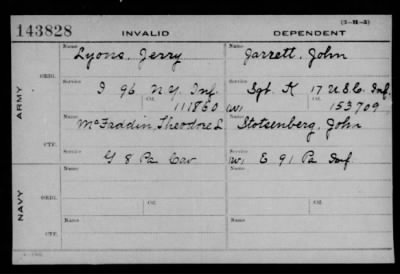 143828 INVALID DEPENDENT (3-M-3)
Name Lyons, Jerry Name Jarrett, John
ARMY ORIG. Service I 96 N.Y. Inf. Service Sgt. K 17 U.S.C. Inf.
Ctf. 111860 (W) Ctf. 153709
Name McFaddin, Theodore L. Name Stotsenberg, John
CTF. Service G 8 Pa Cav Service (W) E 91 Pa Inf.
NAVY ORIG. Name Name
Service Ctf. Service Ctf.
CTF. Name Name
Service Service